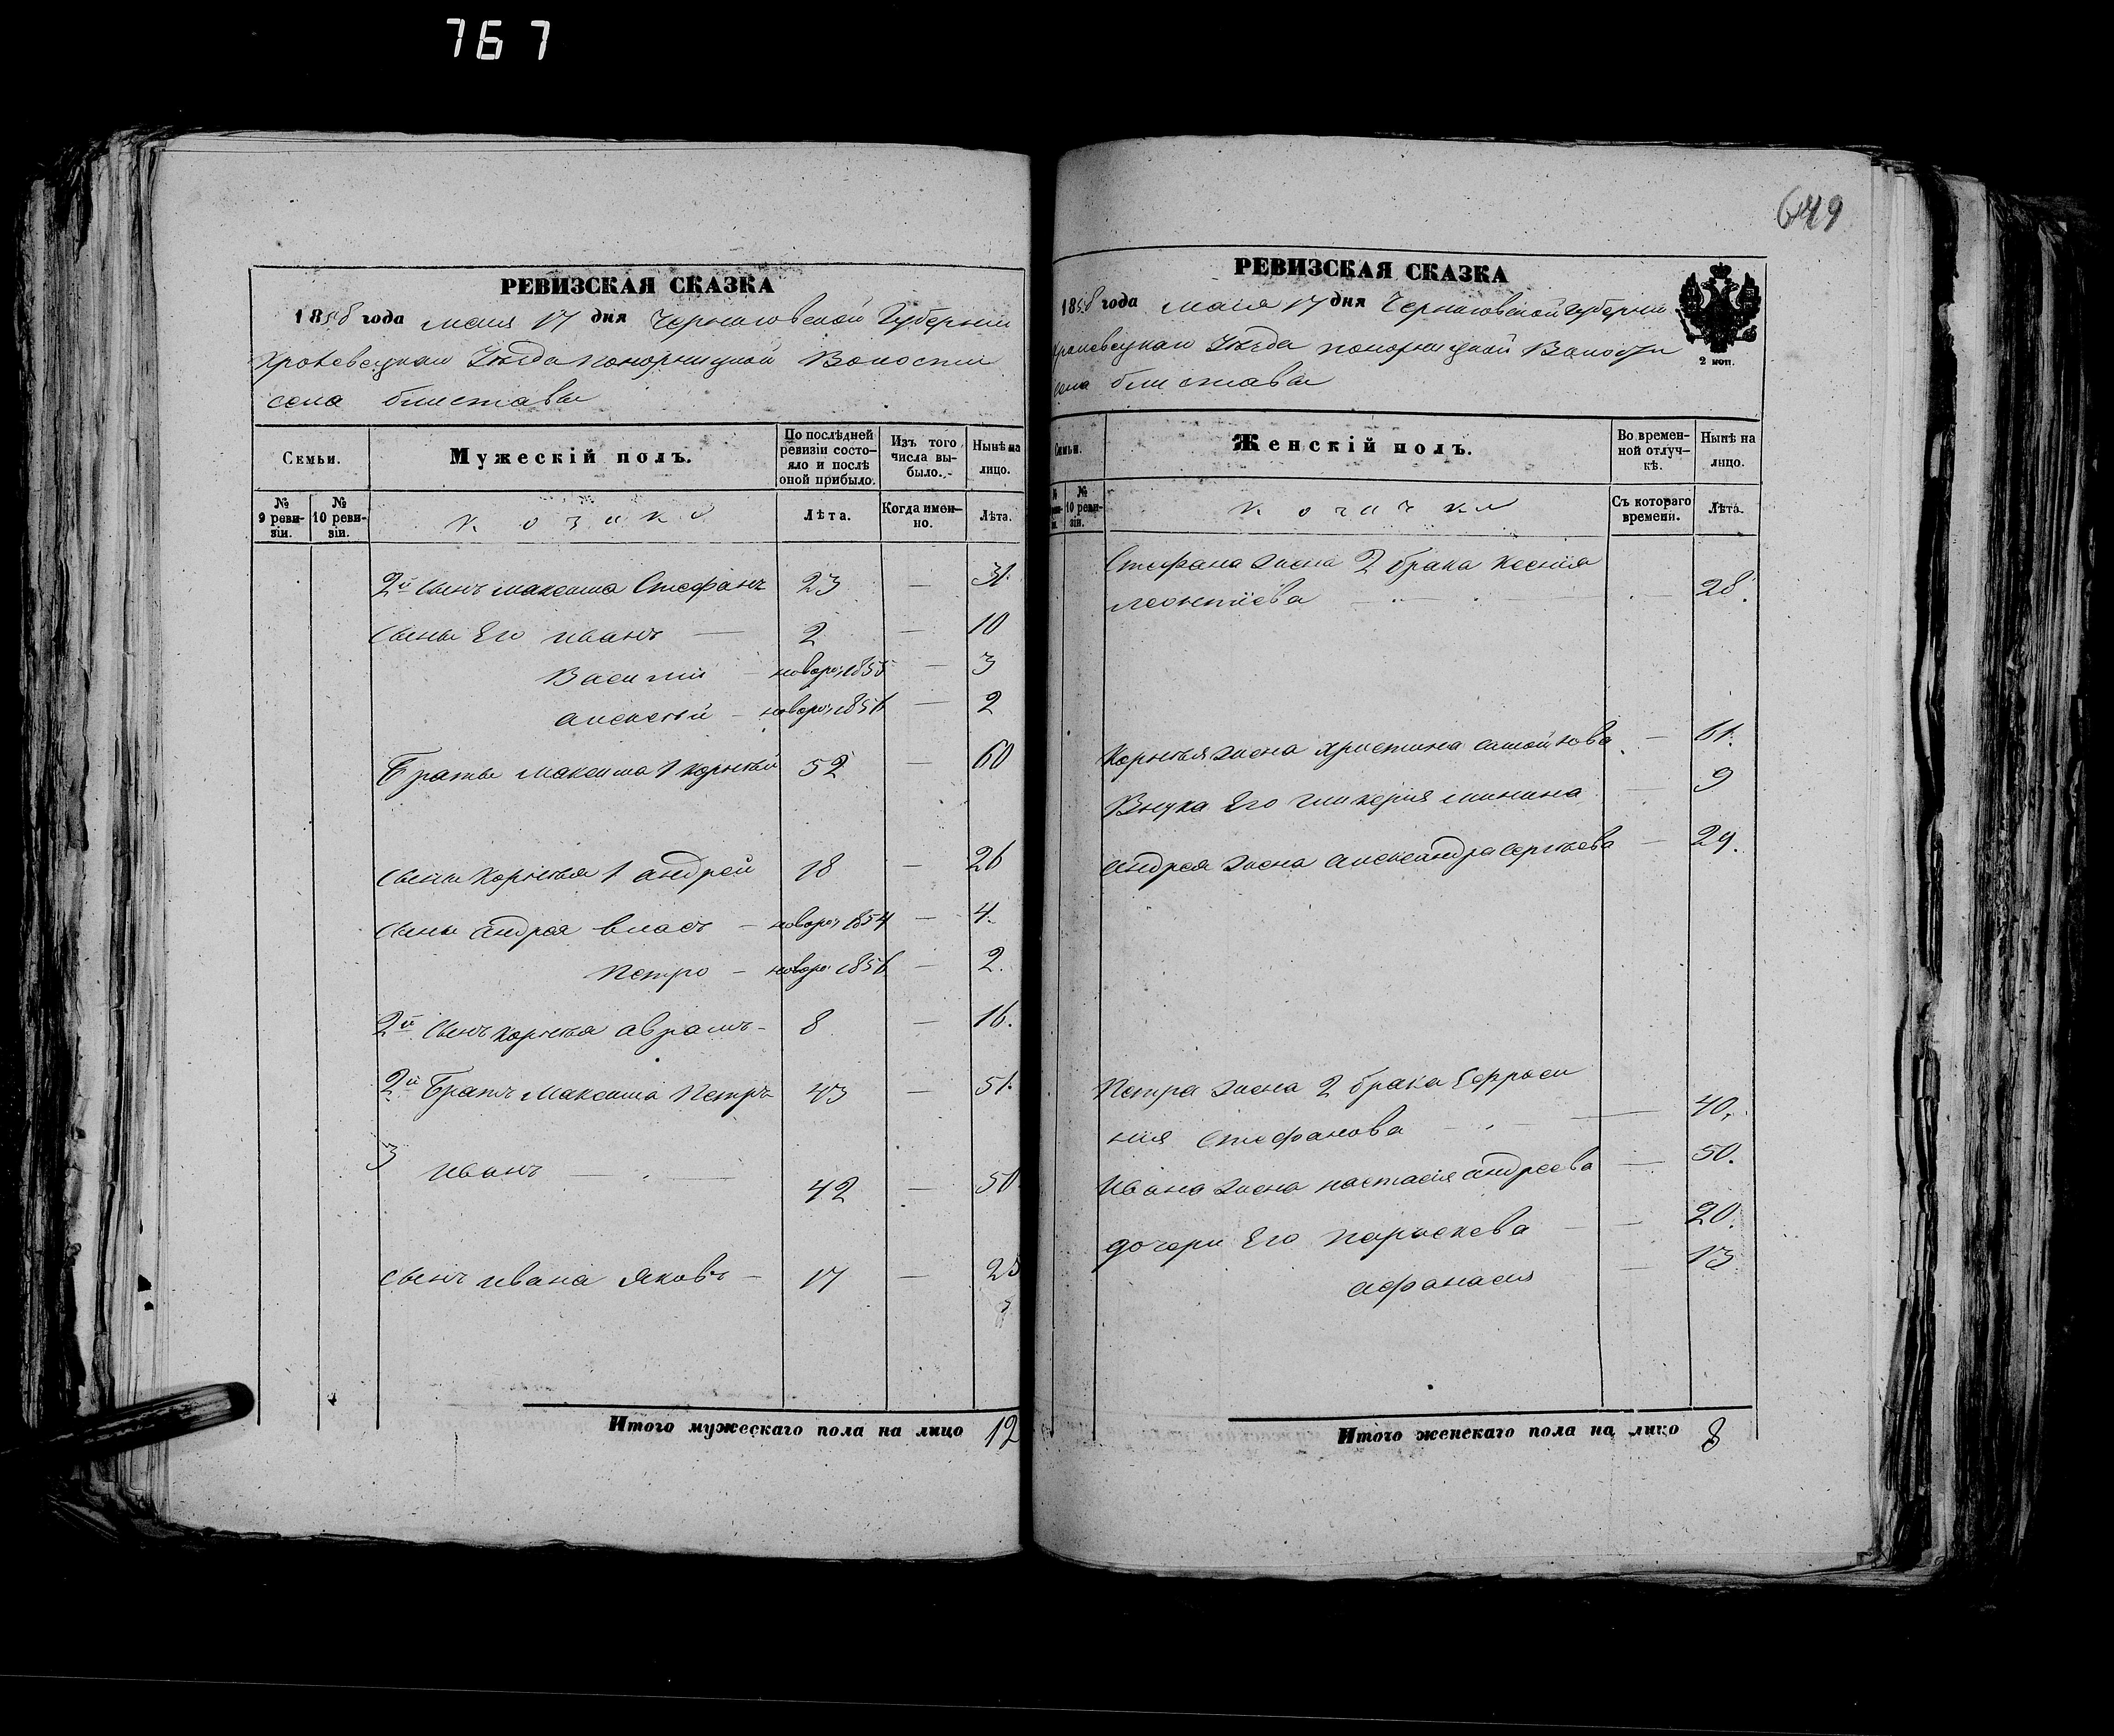 767
649
РЕВИЗСКАЯ СКАЗКА
1858 года маия 17 дня Черниговской Губерніи
Кролевецкаго Уезда Понорницкой Волости
села блиставы
Семьи.
Мужескій полъ.
По послѣдней ревизіи состояло и послѣ оной прибыло.
Изъ того числа выбыло.
Нынѣ на лицо.
№ 9 ревизіи.
№ 10 ревизіи.
козаки
Лѣта.
Когда именно.
Лѣта.
2й сынъ максима Стефанъ 23 — 31.
сыны Его иванъ — 2 — 10
Василій — новоро; 1855 — 3
алексѣй — новоро; 1856 — 2
Братья максима 1 корнѣй 52 — 60
сыны корнѣя 1 андрей 18 — 26
сыны андрея власъ — новоро; 1854 — 4.
петро — новоро 1856 — 2.
2й сынъ корнѣя аврамъ — 8 — 16.
2й Братъ максима петръ 43 — 51.
3 иванъ — 42 — 50
сынъ ивана яковъ — 17 — 25
Итого мужескаго пола на лицо 12
РЕВИЗСКАЯ СКАЗКА
1858 года маія 17 дня Черниговской губерніи
Кролевецкаго Уезда понорницкой Волости
села блиставы
2 коп.
Семьи.
Женскій полъ.
Во временной отлучкѣ.
Нынѣ на лицо.
№ 10 ревизіи.
козачки
Съ котораго времени.
Лѣта.
Стефана жена 2 брака ксенія
леонтіева — 28.
корнѣя жена христина самойлова — 61.
Внука Его гликерия минина — 9
андрея жена александра сергѣева — 29.
петра жена 2 брака Ефроси
нія стефанова — 40.
ивана жена настасія андреева — 50.
дочери Его параскева — 20.
афанасия — 13
Итого женскаго пола на лицо 8